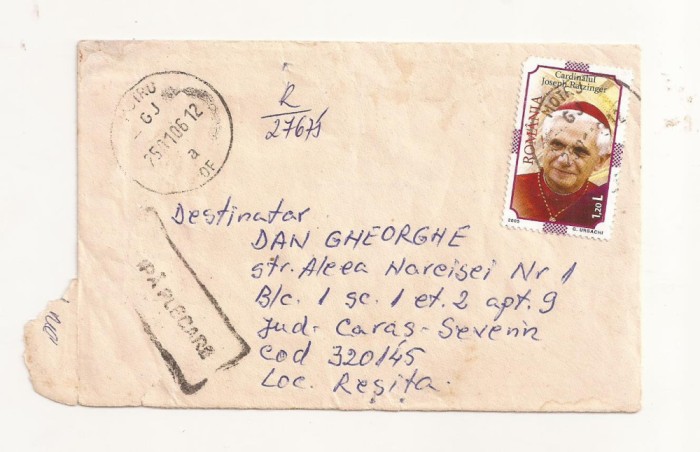 Cardinalul
Joseph Ratzinger
ROMÂNIA
1,20 L
2005
G. URSACHI
GJ
25 11 06 12
a
OF
R
27675
Destinatar
DAN GHEORGHE
str. Aleea Narcisei Nr 1
Blc. 1 sc. 1 et. 2 apt. 9
Jud- Caraş-Severin
Cod 320145
Loc. Reşiţa.
PĂ PLECARE